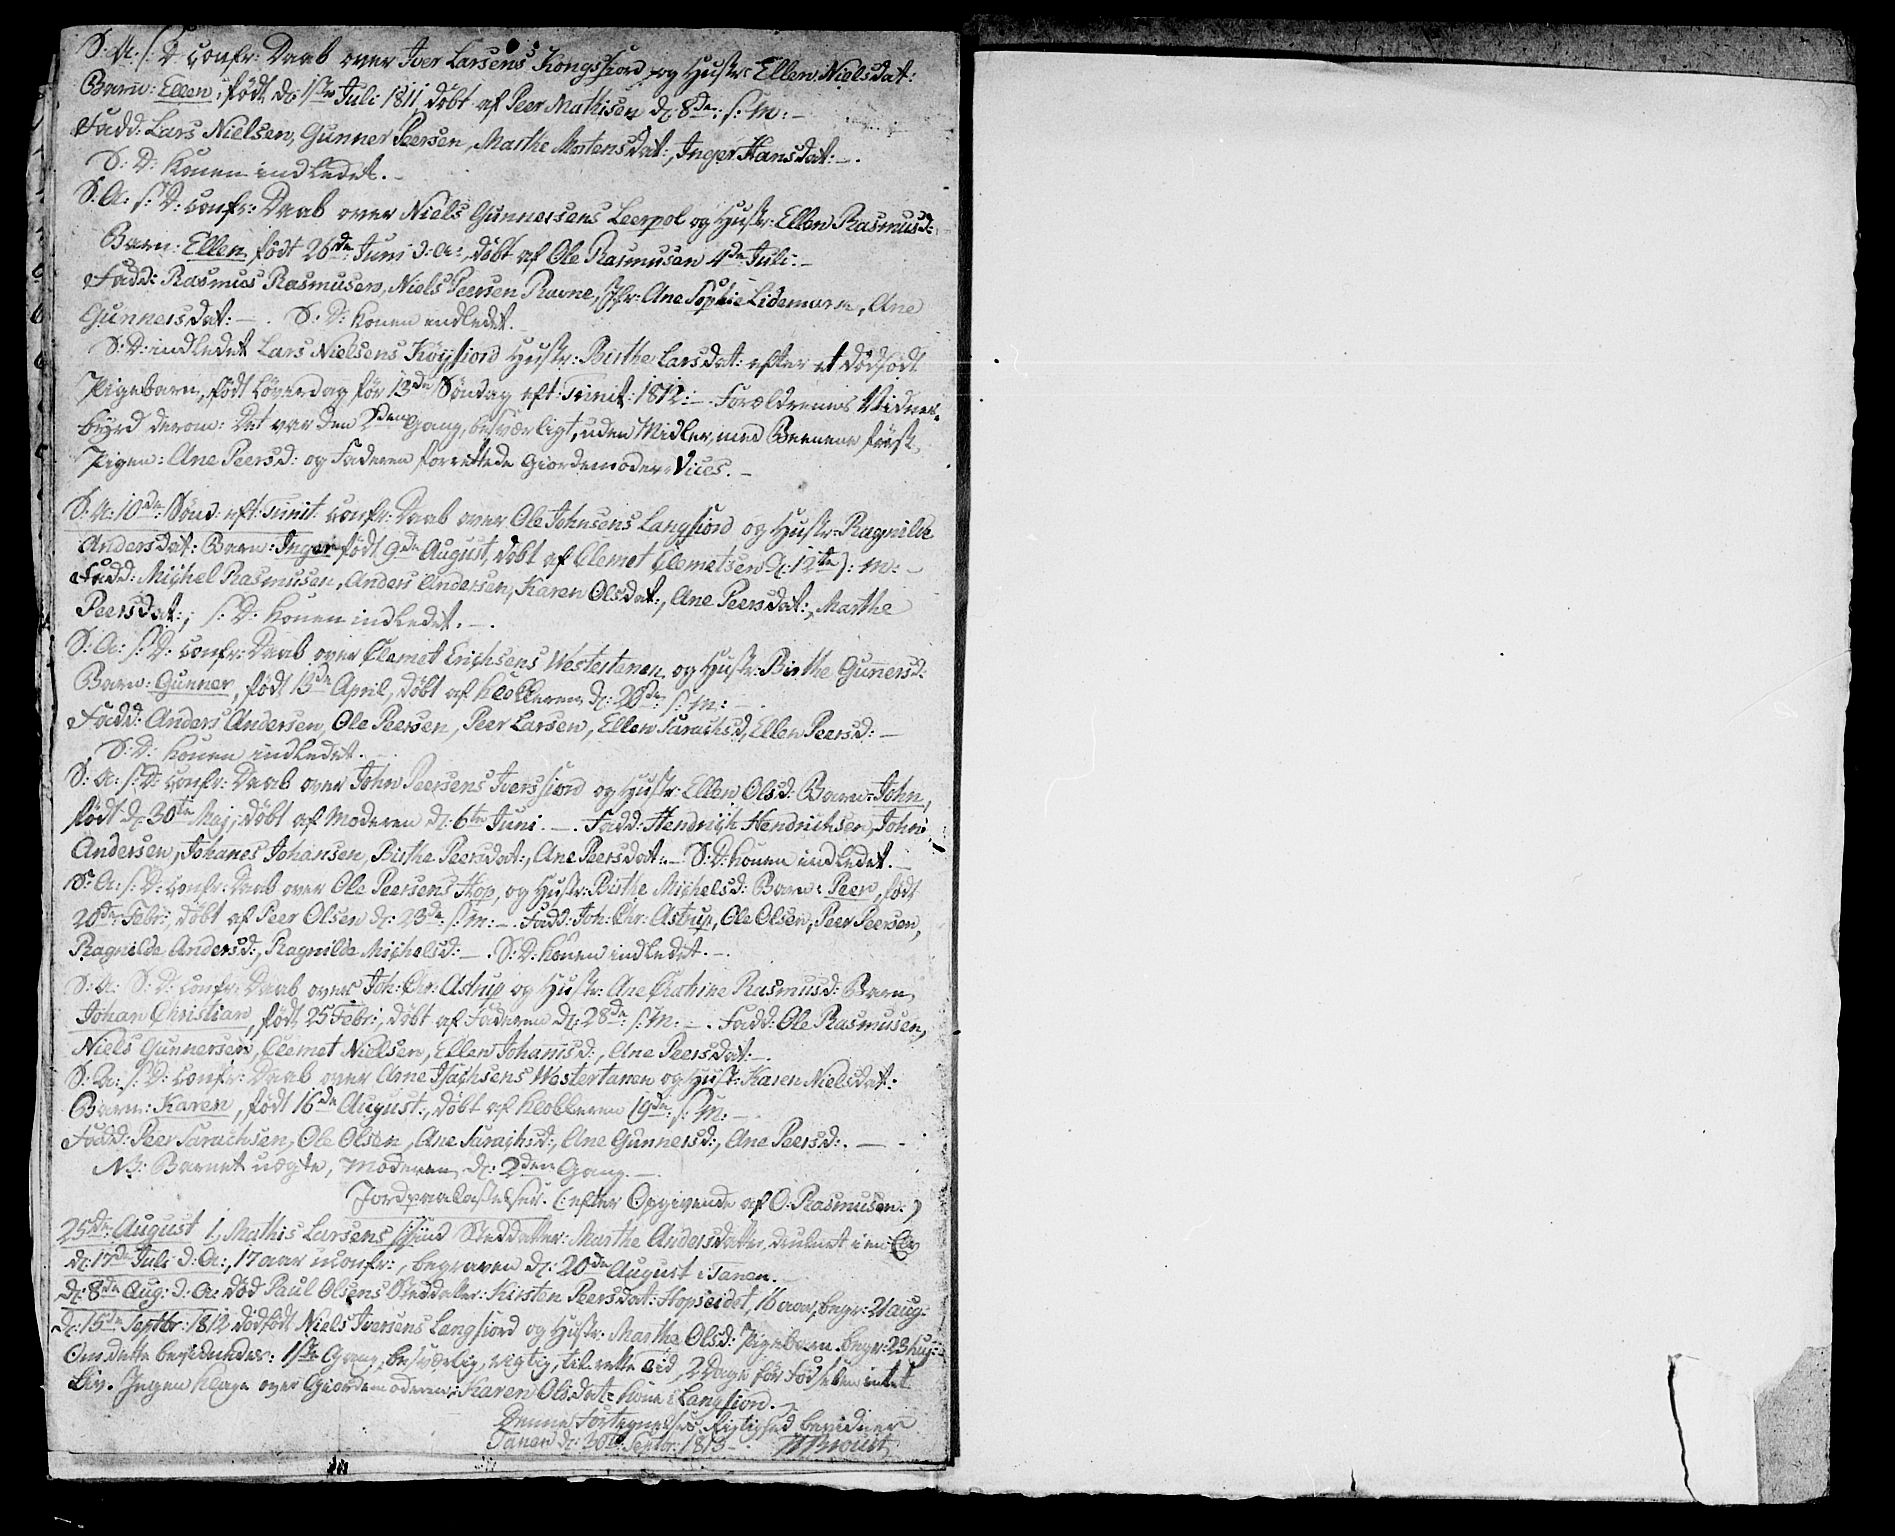 S: A: s: D: confr: Daab over Iver Larsens Kongsfiord og Hustr: Ellen Nielsdat:
Barn: Ellen, født d: 1ste Juli 1811, døbt af Peer Mathisen d: 8de: s: M: –
Fadd: Lars Nielsen, Gunner Peersen, Marthe Mortensdat:, Inger Hansdat: –.
S: D: Konen indledet. –
S: A: s: D: confr: Daab over Niels Gunnersens Leerpol og Hustr: Ellen Rasmusd:
Barn: Ellen, født 26de Juni d: A:, døbt af Ole Rasmusen 4de Juli: –
Fadd: Rasmus Rasmusen, Niels Peersen Ravne, Jfr: Ane Sophie Lidemark, Ane
Gunnersdat: –. S: D: Konen indledet. –
S: D: indledet Lars Nielsens Køyfiord Hustr: Birthe Larsdat: efter et dødfødt
Pigebarn, født Løverdag før 13de Søndag eft: Trinit: 1812: –. Forældrenes Vidnes-
byrd derom: Det var den 2den Gang, besværligt, uden Midler, med Beenene først,
Pigen: Ane Peersd: og Faderen forrettede Giordemoder-Vices. –
S: A: 10de Sønd: eft: Trinit: confr: Daab over Ole Johnsens Langfiord og Hustr: Ragnilde
Andersdat: Barn: Inger, født 9de August, døbt af Clemet Clemetsen d: 12te s: M: –
Fadd: Michel Rasmusen, Anders Andersen, Karen Olsdat:, Ane Peersdat:, Marthe
Peersdat:; s: D: Konen indledet. –.
S: A: s: D: confr: Daab over Clemet Erichsens Westertanen og Hustr: Birthe Gunnersd:
Barn: Gunner, født 13de April, døbt af Klokkeren d: 20de: s: M: –.
Fadd: Anders Andersen, Ole Peersen, Peer Larsen, Ellen Sarachsd, Ellen Peersd: –
S: D: Konen indledet. –
S: A: s: D: confr: Daab over John Peersens Iversfiord og Hustr: Ellen Olsd: Barn: John,
født d: 30te Maj, døbt af Moderen d: 6te Juni. –. Fadd: Hendrich Hendrichsen, John
Andersen, Johanes Johansen, Birthe Peersdat:, Ane Peersdat: – S: D: Konen indledet. –
S: A: s: D: confr: Daab over Ole Peersens Hop, og Hustr: Birthe Michelsd: Barn: Peer, født
20de Febr: døbt af Peer Olsen d: 23de: s: M: –. Fadd: Joh: Chr: Astrup, Ole Olsen, Peer Peersen,
Ragnilde Andersd:, Ragnilde Michelsd: –. S: D: Konen indledet. –.
S: A: S: D: confr: Daab over Joh: Chr: Astrup og Hustr: Ane Chatrine Rasmusd: Barn
Johan Christian, født 25 Febr:, døbt af Faderen d: 28de: s: M: –. Fadd: Ole Rasmusen,
Niels Gunnersen, Clemet Nielsen, Ellen Johannsd:, Ane Peersdat: –.
S: A: s: D: confr: Daab over Arne Isachsens Westertanen og Hust: Karen Nielsdat:
Barn: Karen, født 16de August:, døbt af Klokkeren 19de: s: M: –
Fadd: Peer Sarachsen, Ole Olsen, Ane Sarachsd:, Ane Gunnersd:, Ane Peersd:. –
NB: Barnet uægte, Moderen d: 2den Gang –
Jordpaakastelser. (: efter Opgivende af O: Rasmusen: )
25de August 1, Mathis Larsens Steddatter: Marthe Andersdatter, druknet i en Elv
d: 17de Juli d: A:, 17 aar uconfr:, begraven d: 20de August i Tanen. –
d: 8de Aug: d: A: død Paul Olsens Steddatter: Kirsten Peersdat: Hopseidet, 16 aar, begr: 21 aug:
d: 15de Septbr: 1812 dødfødt Niels Iversens Langfiord og Hustr: Marthe Olsd: Pigebarn, begr: 23 huj: –
Om dette besvindes: 1ste Gang, besværlig, rigtig, til rette Tid, 2 Dage før Fødselen intet
Liv. Ingen Klage over Giordemoderen: Karen Olsdat: Kone i Langfiord. –
Denne Fortegnelses Rigtighed bevidner
Tanen d: 30te Septbr: 1813 –.